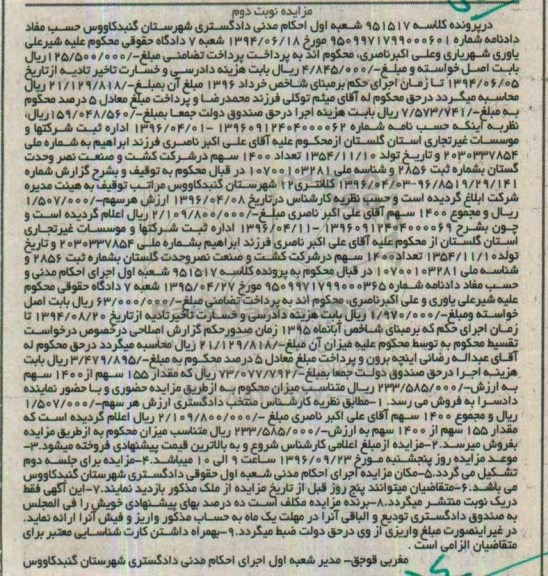 مزایده نوبت دوم
درپرونده کلاسه ۹۵۱۵۱۷ شعبه اول احکام مدنی دادگستری شهرستان گنبدکاووس حسب مفاد
دادنامه شماره ۹۵۰۹۹۷۱۷۹۹۰۰۰۶۰۱ مورخ ۱۳۹۴/۰۶/۱۸ شعبه ۷ دادگاه حقوقی محکوم علیه شیرعلی
یاوری شهریاری وعلی اکبرناصری، محکوم اند به پرداخت پرداخت تضامنی مبلغ-/۱۲۵/۵۰۰/۰۰۰ریال
بابت اصل خواسته و مبلغ-/۴/۸۴۵/۰۰۰ ریال بابت هزینه دادرسی و خسارت تاخیر تادیه ازتاریخ
۱۳۹۴/۰۶/۰۵ تا زمان اجرای حکم برمبنای شاخص خرداد ۱۳۹۶ مبلغ آن بمبلغ-/۲۱/۱۲۹/۸۱۸ ریال
محاسبه میگردد درحق محکوم له آقای میثم توکلی فرزند محمدرضا و پرداخت مبلغ معادل ۵ درصد محکوم
به مبلغ-/۷/۵۷۳/۷۴۱ ریال بابت هزینه اجرا درحق صندوق دولت جمعا بمبلغ-/۱۵۹/۰۴۸/۵۶۰ریال،
نظربه اینکه حسب نامه شماره ۱۳۹۶۰۹۱۲۴۰۴۰۰۰۰۶۲ -۱۳۹۶/۰۴/۰۱ اداره ثبت شرکتها و
موسسات غیرتجاری استان گلستان ازمحکوم علیه آقای علی اکبر ناصری فرزند ابراهیم به شماره ملی
۲۰۳۰۳۳۷۸۵۴ و تاریخ تولد ۱۳۵۴/۱۱/۱۰ تعداد ۱۴۰۰ سهم درشرکت کشت و صنعت نصر وحدت
گلستان بشماره ثبت ۲۸۵۶ و شناسه ملی ۱۰۷۰۰۱۰۳۲۸۱ در قبال محکوم به توقیف و بشرح گزارش شماره
۹۶/۸۵۱۹/۲۹/۱۴۱-۱۳۹۶/۰۴/۰۳ کلانتری۱۲ شهرستان گنبدکاووس مراتب توقیف به هیئت مدیره
شرکت ابلاغ گردیده است و حسب نظریه کارشناس درتاریخ ۱۳۹۶/۰۴/۰۸ ارزش هرسهم-/۱/۵۰۷/۰۰۰
ریال و مجموع ۱۴۰۰ سهم آقای علی اکبر ناصری مبلغ-/۲/۱۰۹/۸۰۰/۰۰۰ ریال اعلام گردیده است و
چون بشرح ۱۳۹۶۰۹۱۲۴۰۴۰۰۰۰۶۹ -۱۳۹۶/۰۴/۱۱ اداره ثبت شرکتها و موسسات غیرتجاری
استان گلستان از محکوم علیه آقای علی اکبر ناصری فرزند ابراهیم بشماره ملی ۲۰۳۰۳۳۷۸۵۴ و تاریخ
تولد۱۳۵۴/۱۱/۱۰ تعداد۱۴۰۰ سهم درشرکت کشت و صنعت نصروحدت گلستان بشماره ثبت ۲۸۵۶ و
شناسه ملی ۱۰۷۰۰۱۰۳۲۸۱ در قبال محکوم به پرونده کلاسه ۹۵۱۵۱۷ شعبه اول اجرای احکام مدنی و
حسب مفاد دادنامه شماره ۹۵۰۹۹۷۱۷۹۹۰۰۰۳۶۵ مورخ ۱۳۹۵/۰۴/۲۷ شعبه ۷ دادگاه حقوقی محکوم
علیه شیرعلی یاوری و علی اکبرناصری، محکوم اند به پرداخت تضامنی مبلغ-/۶۳/۰۰۰/۰۰۰ ریال بابت اصل
خواسته ومبلغ-/۱/۹۷۰/۰۰۰ ریال بابت هزینه دادرسی و خسارت تاخیرتادیه ازتاریخ ۱۳۹۴/۰۸/۲۰ تا
زمان اجرای حکم که برمبنای شاخص آبانماه ۱۳۹۵ زمان صدورحکم گزارش اصلاحی درخصوص درخواست
تقسیط محکوم به توسط محکوم علیه میزان آن مبلغ-/۲۱/۱۲۹/۸۱۸ ریال محاسبه میگردد درحق محکوم له
آقای عبداله رضائی اینچه برون و پرداخت مبلغ معادل ۵ درصد محکوم به مبلغ-/۳/۴۷۹/۸۹۵ ریال بابت
هزینه اجرا درحق صندوق دولت جمعا بمبلغ-/۷۳/۰۷۷/۷۹۲ریال که مقدار ۱۵۵ سهم از ۱۴۰۰ سهم
به ارزش-/۲۳۳/۵۸۵/۰۰۰ ریال متناسب میزان محکوم به ازطریق مزایده حضوری و با حضور نماینده
دادسرا به فروش می رسد. ۱-مطابق نظریه کارشناس منتخب دادگستری ارزش هر سهم-/۱/۵۰۷/۰۰۰
ریال و مجموع ۱۴۰۰ سهم آقای علی اکبر ناصری مبلغ -/۲/۱۰۹/۸۰۰/۰۰۰ ریال اعلام گردیده است که
مقدار ۱۵۵ سهم از ۱۴۰۰ سهم به ارزش-/۲۳۳/۵۸۵/۰۰۰ ریال متناسب میزان محکوم به ازطریق مزایده
بفروش میرسد.۲-مزایده ازمبلغ اعلامی کارشناس شروع و به بالاترین قیمت پیشنهادی فروخته میشود.۳-
موعد مزایده روز پنجشنبه مورخ ۱۳۹۶/۰۹/۲۳ ساعت ۹ الی ۱۰ میباشد.۴-مزایده برای جلسه دوم
تشکیل می گردد.۵-مکان مزایده اجرای احکام مدنی شعبه اول حقوقی دادگستری شهرستان گنبدکاووس
می باشد.۶-متقاضیان میتوانند پنج روز قبل از تاریخ مزایده از ملک مذکور بازدید نمایند.۷-این آگهی فقط
دریک نوبت منتشر میگردد.۸-برنده مزایده مکلف است ده درصد بهای پیشنهادی خویش را فی المجلس
به صندوق دادگستری تودیع و الباقی آنرا در مهلت یک ماه به حساب مذکور واریز و فیش آنرا ارائه نماید.
در غیراینصورت مبلغ واریزی از وی درحق دولت ضبط میگردد.۹-بهمراه داشتن کارت شناسایی معتبر برای
متقاضیان الزامی است.
مغربی قوجق- مدیر شعبه اول اجرای احکام مدنی دادگستری شهرستان گنبدکاووس